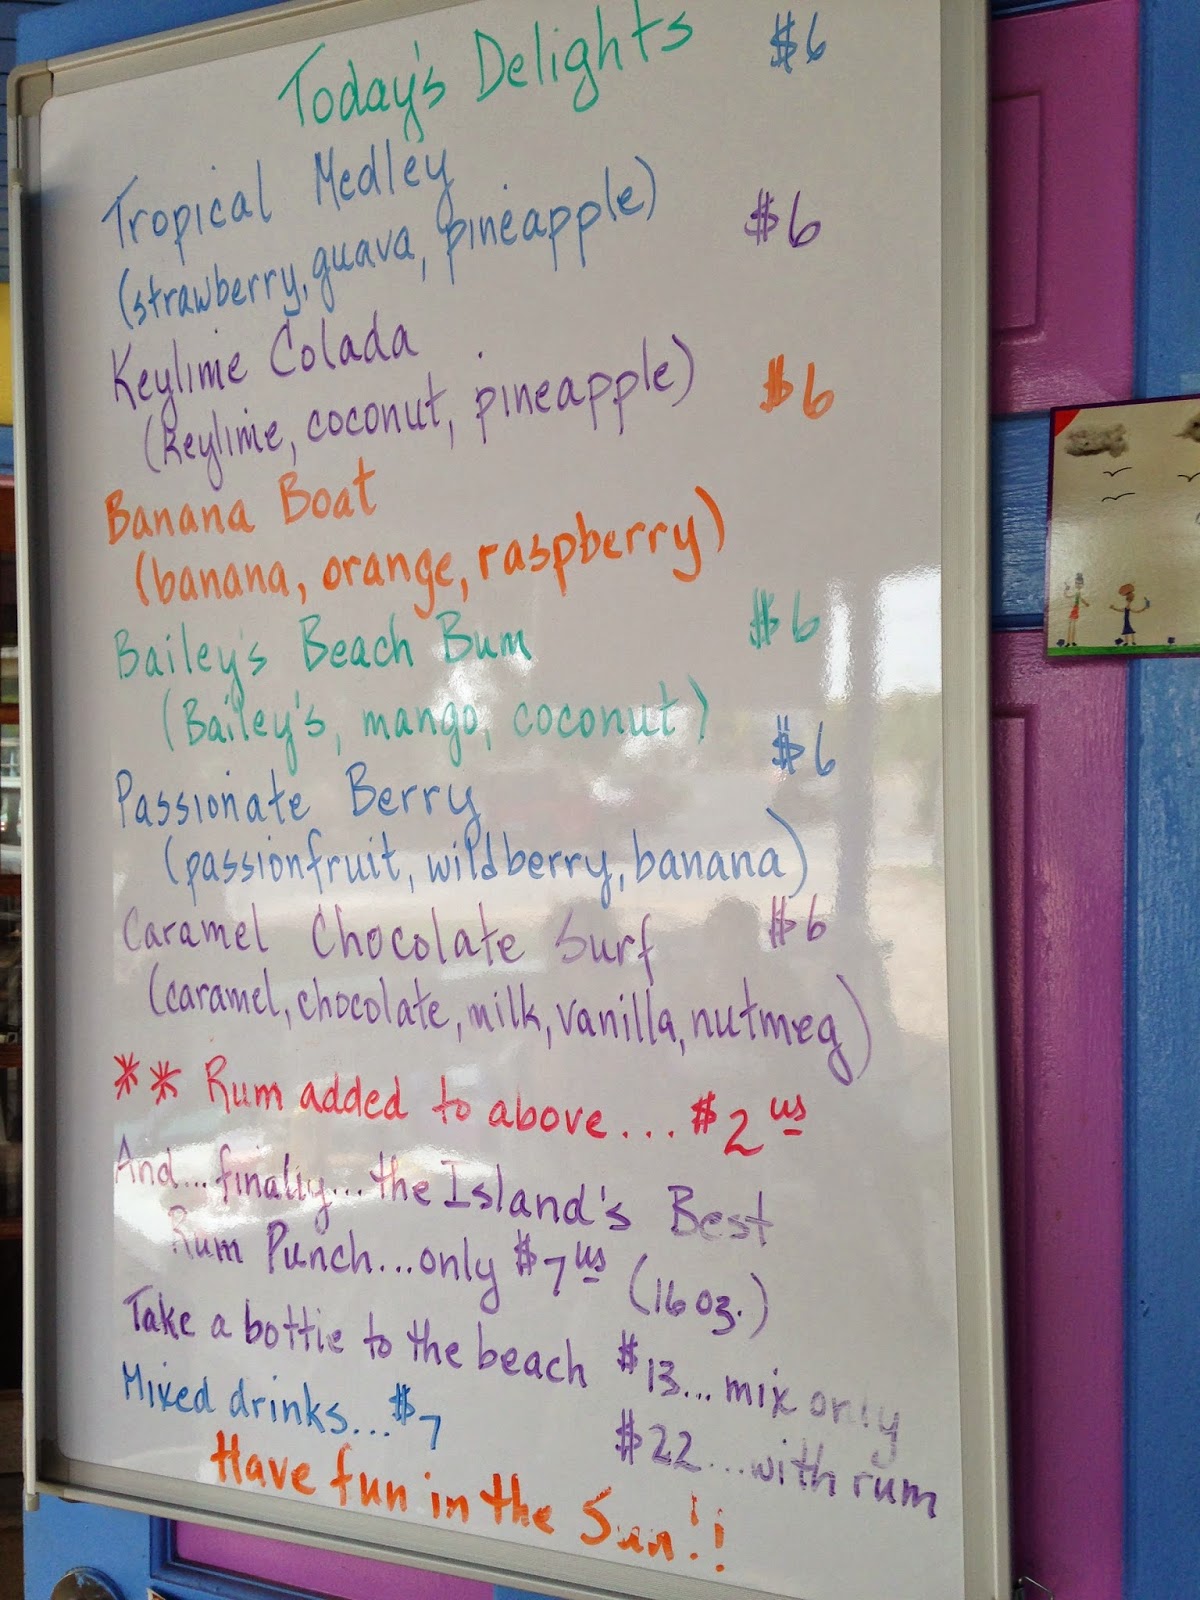 Today's Delights
Tropical Medley $6
(strawberry, guava, pineapple)
Keylime Colada $6
(keylime, coconut, pineapple)
Banana Boat $6
(banana, orange, raspberry)
Bailey's Beach Bum $6
(Bailey's, mango, coconut)
Passionate Berry $6
(passionfruit, wildberry, banana)
Caramel Chocolate Surf $6
(caramel, chocolate, milk, vanilla, nutmeg)
** Rum added to above... $2 us
And...finally...the Island's Best
Rum Punch...only $7 us (16 oz.)
Take a bottle to the beach $13...mix only
$22...with rum
Mixed drinks...$7
Have fun in the Sun!!